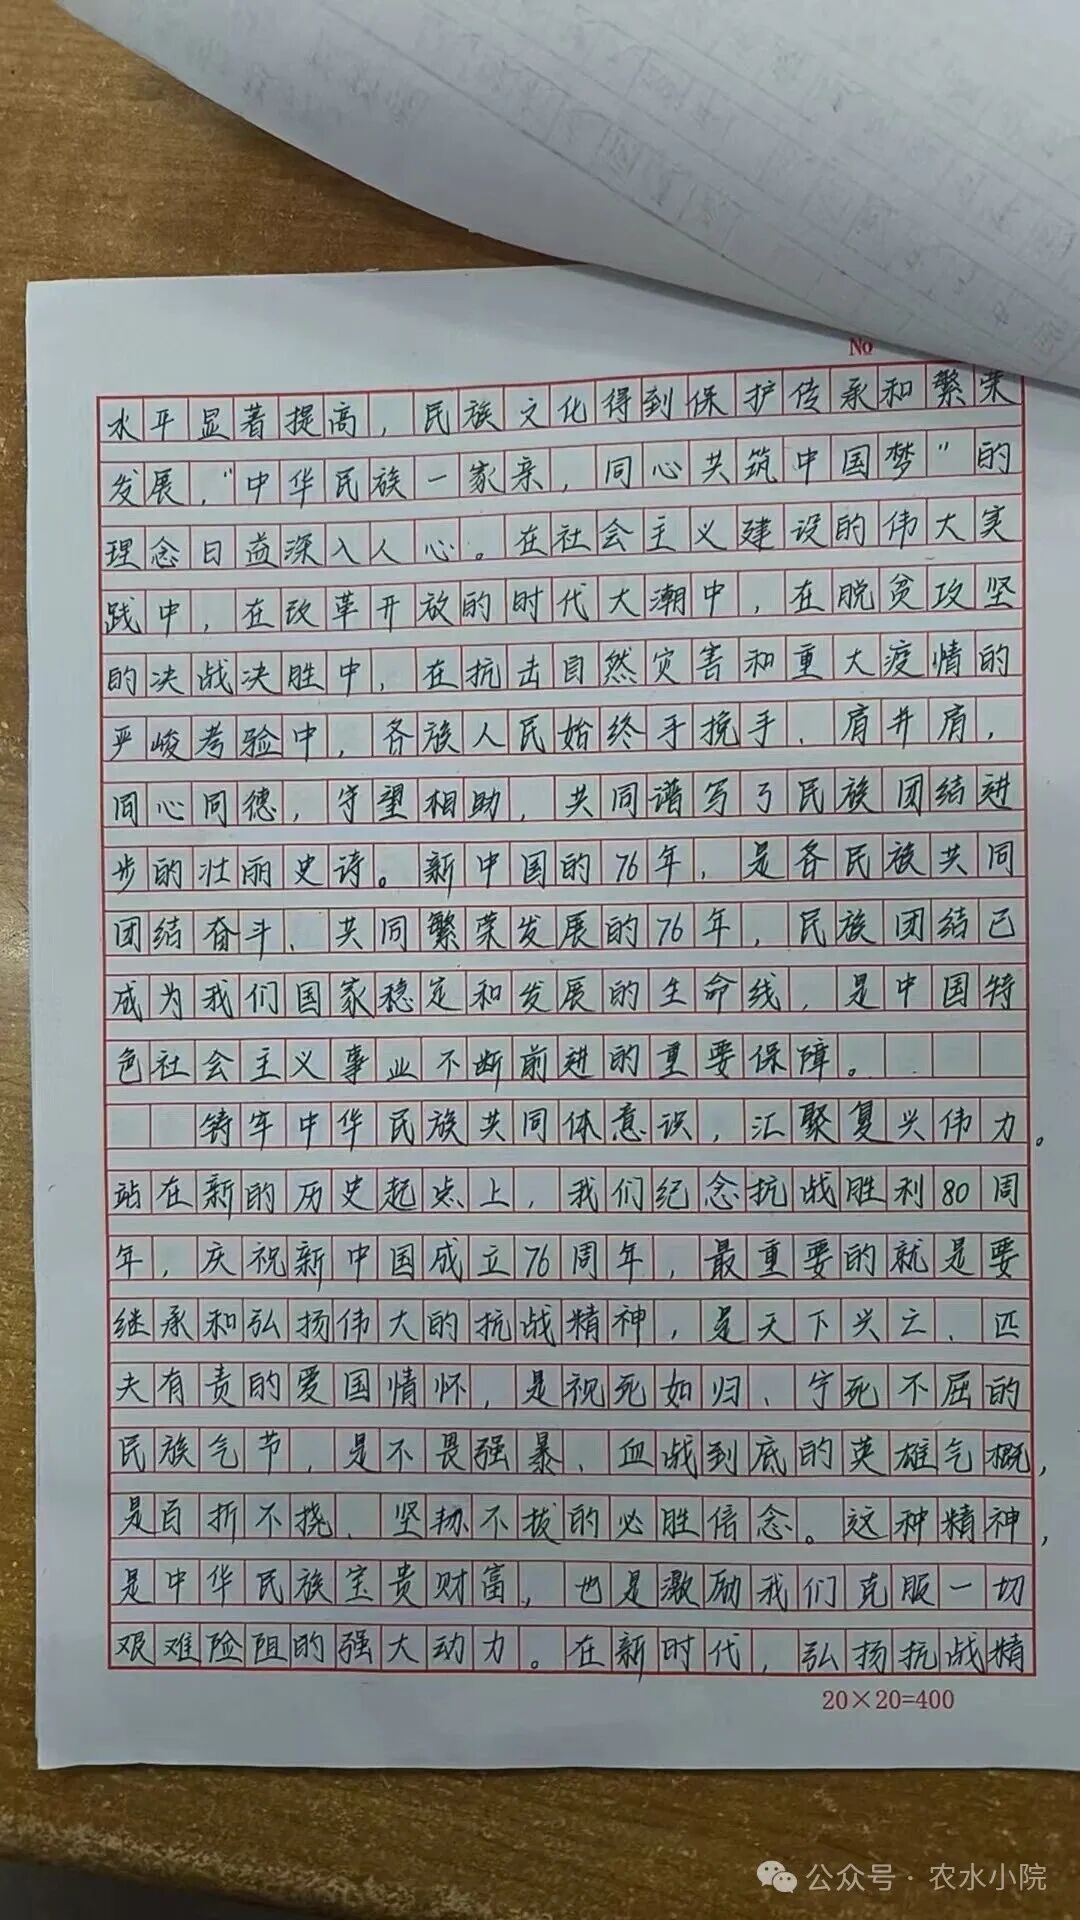 No
水平显著提高，民族文化得到保护传承和繁荣
发展，“中华民族一家亲，同心共筑中国梦”的
理念日益深入人心。在社会主义建设的伟大实
践中，在改革开放的时代大潮中，在脱贫攻坚
的决战决胜中，在抗击自然灾害和重大疫情的
严峻考验中，各族人民始终手挽手、肩并肩，
同心同德，守望相助，共同谱写了民族团结进
步的壮丽史诗。新中国的76年，是各民族共同
团结奋斗、共同繁荣发展的76年，民族团结已
成为我们国家稳定和发展的生命线，是中国特
色社会主义事业不断前进的重要保障。
铸牢中华民族共同体意识，汇聚复兴伟力。
站在新的历史起点上，我们纪念抗战胜利80周
年，庆祝新中国成立76周年，最重要的就是要
继承和弘扬伟大的抗战精神，是天下兴亡、匹
夫有责的爱国情怀，是视死如归、宁死不屈的
民族气节，是不畏强暴、血战到底的英雄气概，
是百折不挠、坚韧不拔的必胜信念。这种精神，
是中华民族宝贵财富，也是激励我们克服一切
艰难险阻的强大动力。在新时代，弘扬抗战精
20×20=400
公众号·农水小院